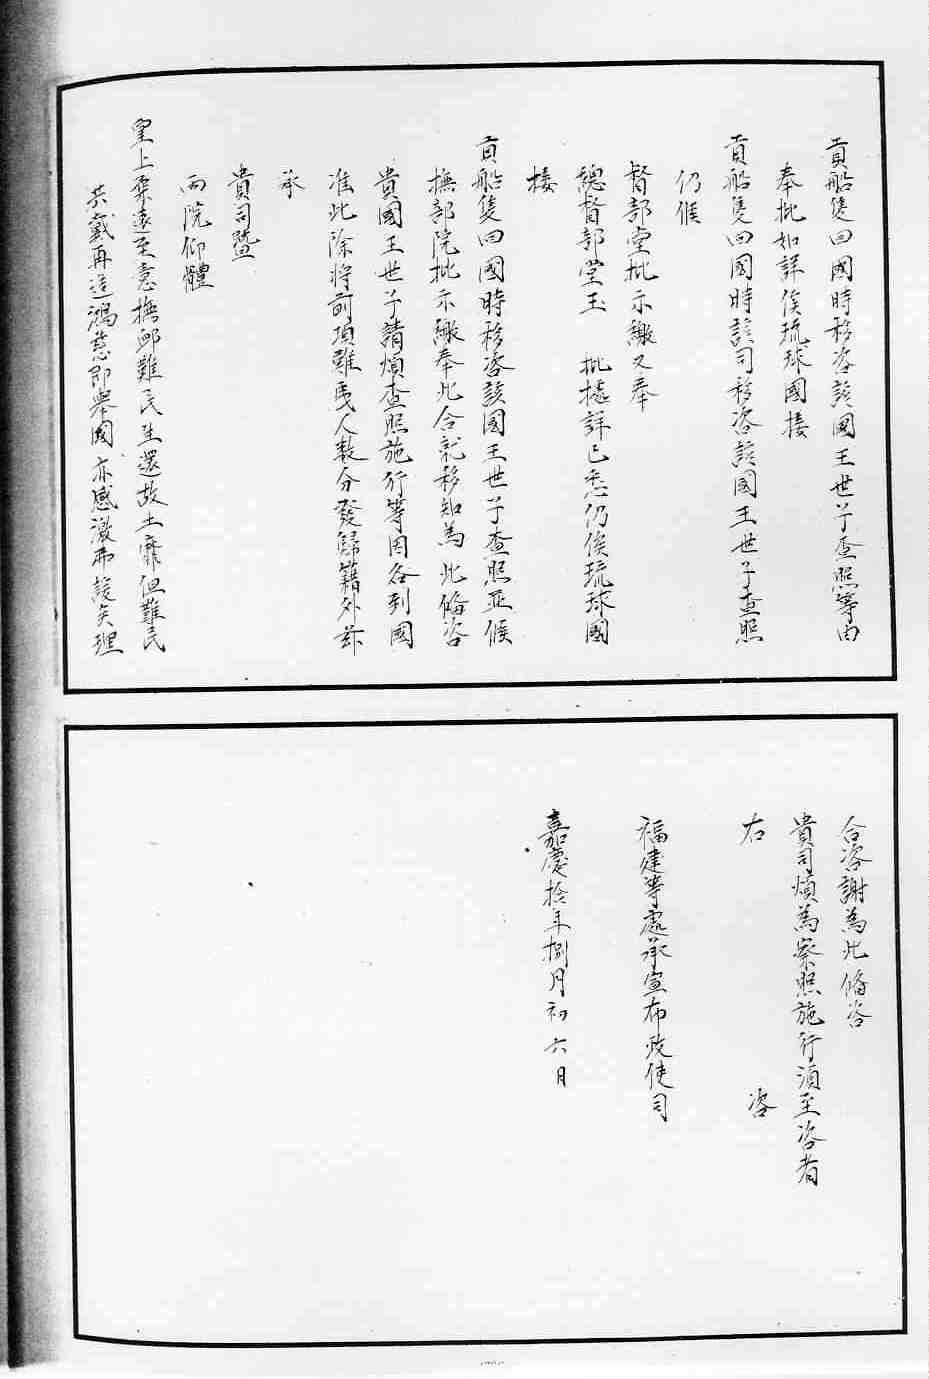 貢船隻回國時移咨該國王世子查照等由
奉批如詳俟琉球國接
貢船隻回國時該司移咨該國王世子查照
仍候
督部堂批示繳又奉
總督部堂玉　批據詳已悉仍俟琉球國
接
貢船隻回國時移咨該國王世子查照並候
撫部院批示繳奉此合就移知為此備咨
貴國王世子請煩查照施行等因咨到國
准此除將前項難夷人數分發歸籍外茲
承
貴司暨
兩院仰體
皇上柔遠至意撫卹難民生還故土靡但難民
共戴再造鴻慈即舉國亦感激弗諼矣理
合咨謝為此備咨
貴司煩為察照施行須至咨者
右　咨
福建等處承宣布政使司
嘉慶拾年捌月初六日